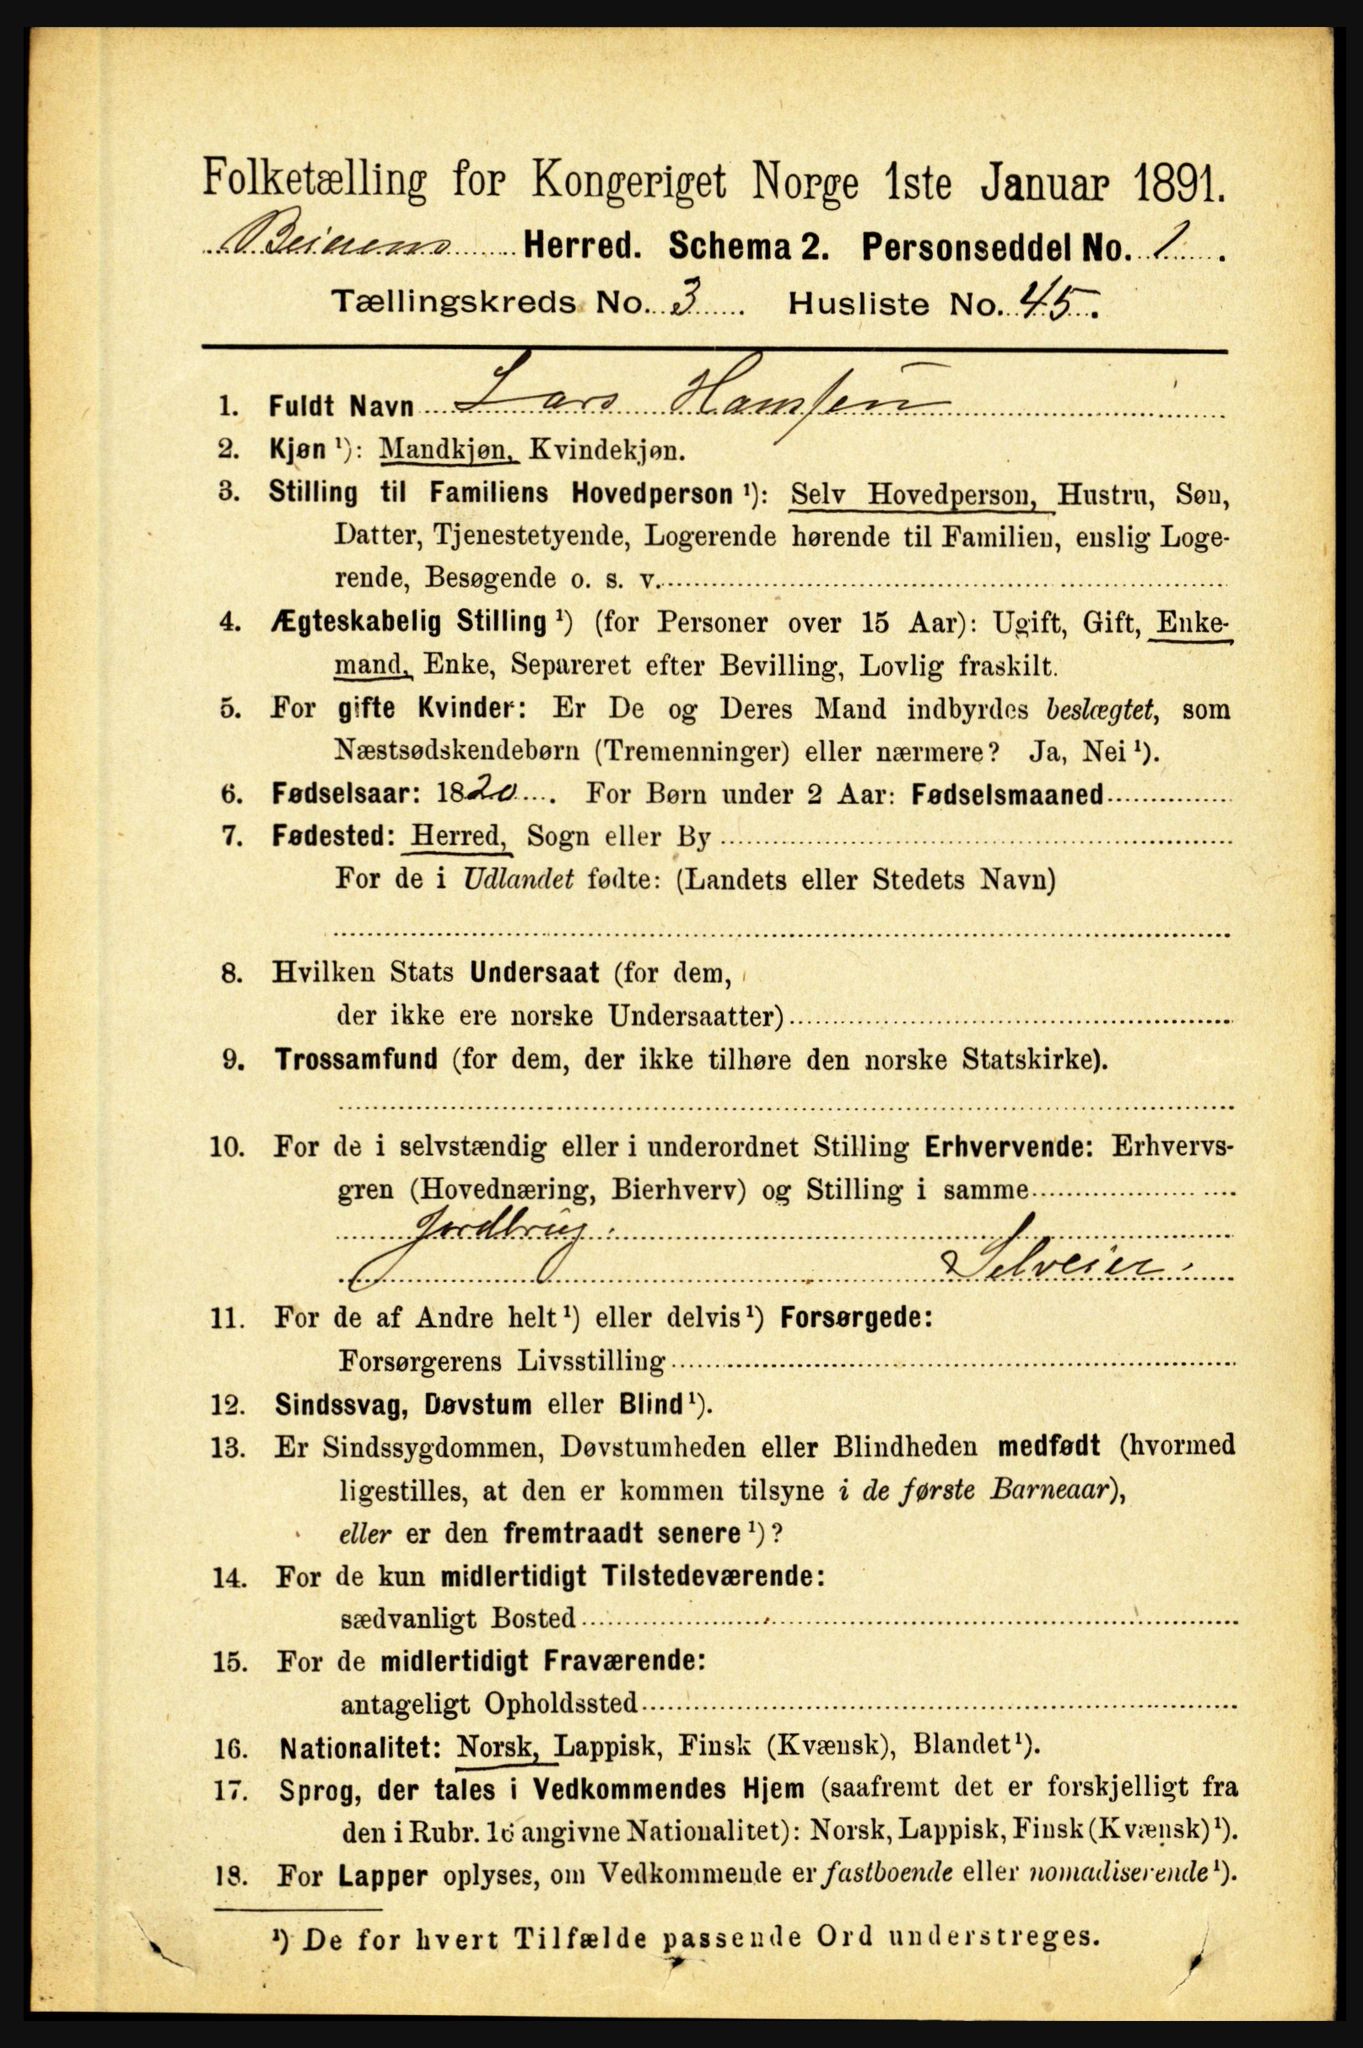 Folketælling for Kongeriget Norge 1ste Januar 1891.
Beiarens Herred. Schema 2. Personseddel No. 1.
Tællingskreds No. 3 Husliste No. 45.
1. Fuldt Navn Lars Hansen
2. Kjøn ¹): Mandkjøn, Kvindekjøn.
3. Stilling til Familiens Hovedperson ¹): Selv Hovedperson, Hustru, Søn,
Datter, Tjenestetyende, Logerende hørende til Familien, enslig Loge-
rende, Besøgende o. s. v.
4. Ægteskabelig Stilling ¹) (for Personer over 15 Aar): Ugift, Gift, Enke-
mand, Enke, Separeret efter Bevilling, Lovlig fraskilt.
5. For gifte Kvinder: Er De og Deres Mand indbyrdes beslægtet, som
Næstsødskendebørn (Tremenninger) eller nærmere? Ja, Nei ¹).
6. Fødselsaar: 1820. For Børn under 2 Aar: Fødselsmaaned
7. Fødested: Herred, Sogn eller By
For de i Udlandet fødte: (Landets eller Stedets Navn)
8. Hvilken Stats Undersaat (for dem,
der ikke ere norske Undersaatter)
9. Trossamfund (for dem, der ikke tilhøre den norske Statskirke).
10. For de i selvstændig eller i underordnet Stilling Erhvervende: Erhvervs-
gren (Hovednæring, Bierhverv) og Stilling i samme
Jordbrug.
Selveier.
11. For de af Andre helt ¹) eller delvis ¹) Forsørgede:
Forsørgerens Livsstilling
12. Sindssvag, Døvstum eller Blind ¹).
13. Er Sindssygdommen, Døvstumheden eller Blindheden medfødt (hvormed
ligestilles, at den er kommen tilsyne i de første Barneaar),
eller er den fremtraadt senere ¹)?
14. For de kun midlertidigt Tilstedeværende:
sædvanligt Bosted
15. For de midlertidigt Fraværende:
antageligt Opholdssted
16. Nationalitet: Norsk, Lappisk, Finsk (Kvænsk), Blandet ¹).
17. Sprog, der tales i Vedkommendes Hjem (saafremt det er forskjelligt fra
den i Rubr. 16 angivne Nationalitet): Norsk, Lappisk, Finsk (Kvænsk) ¹).
18. For Lapper oplyses, om Vedkommende er fastboende eller nomadiserende ¹).
¹) De for hvert Tilfælde passende Ord understreges.